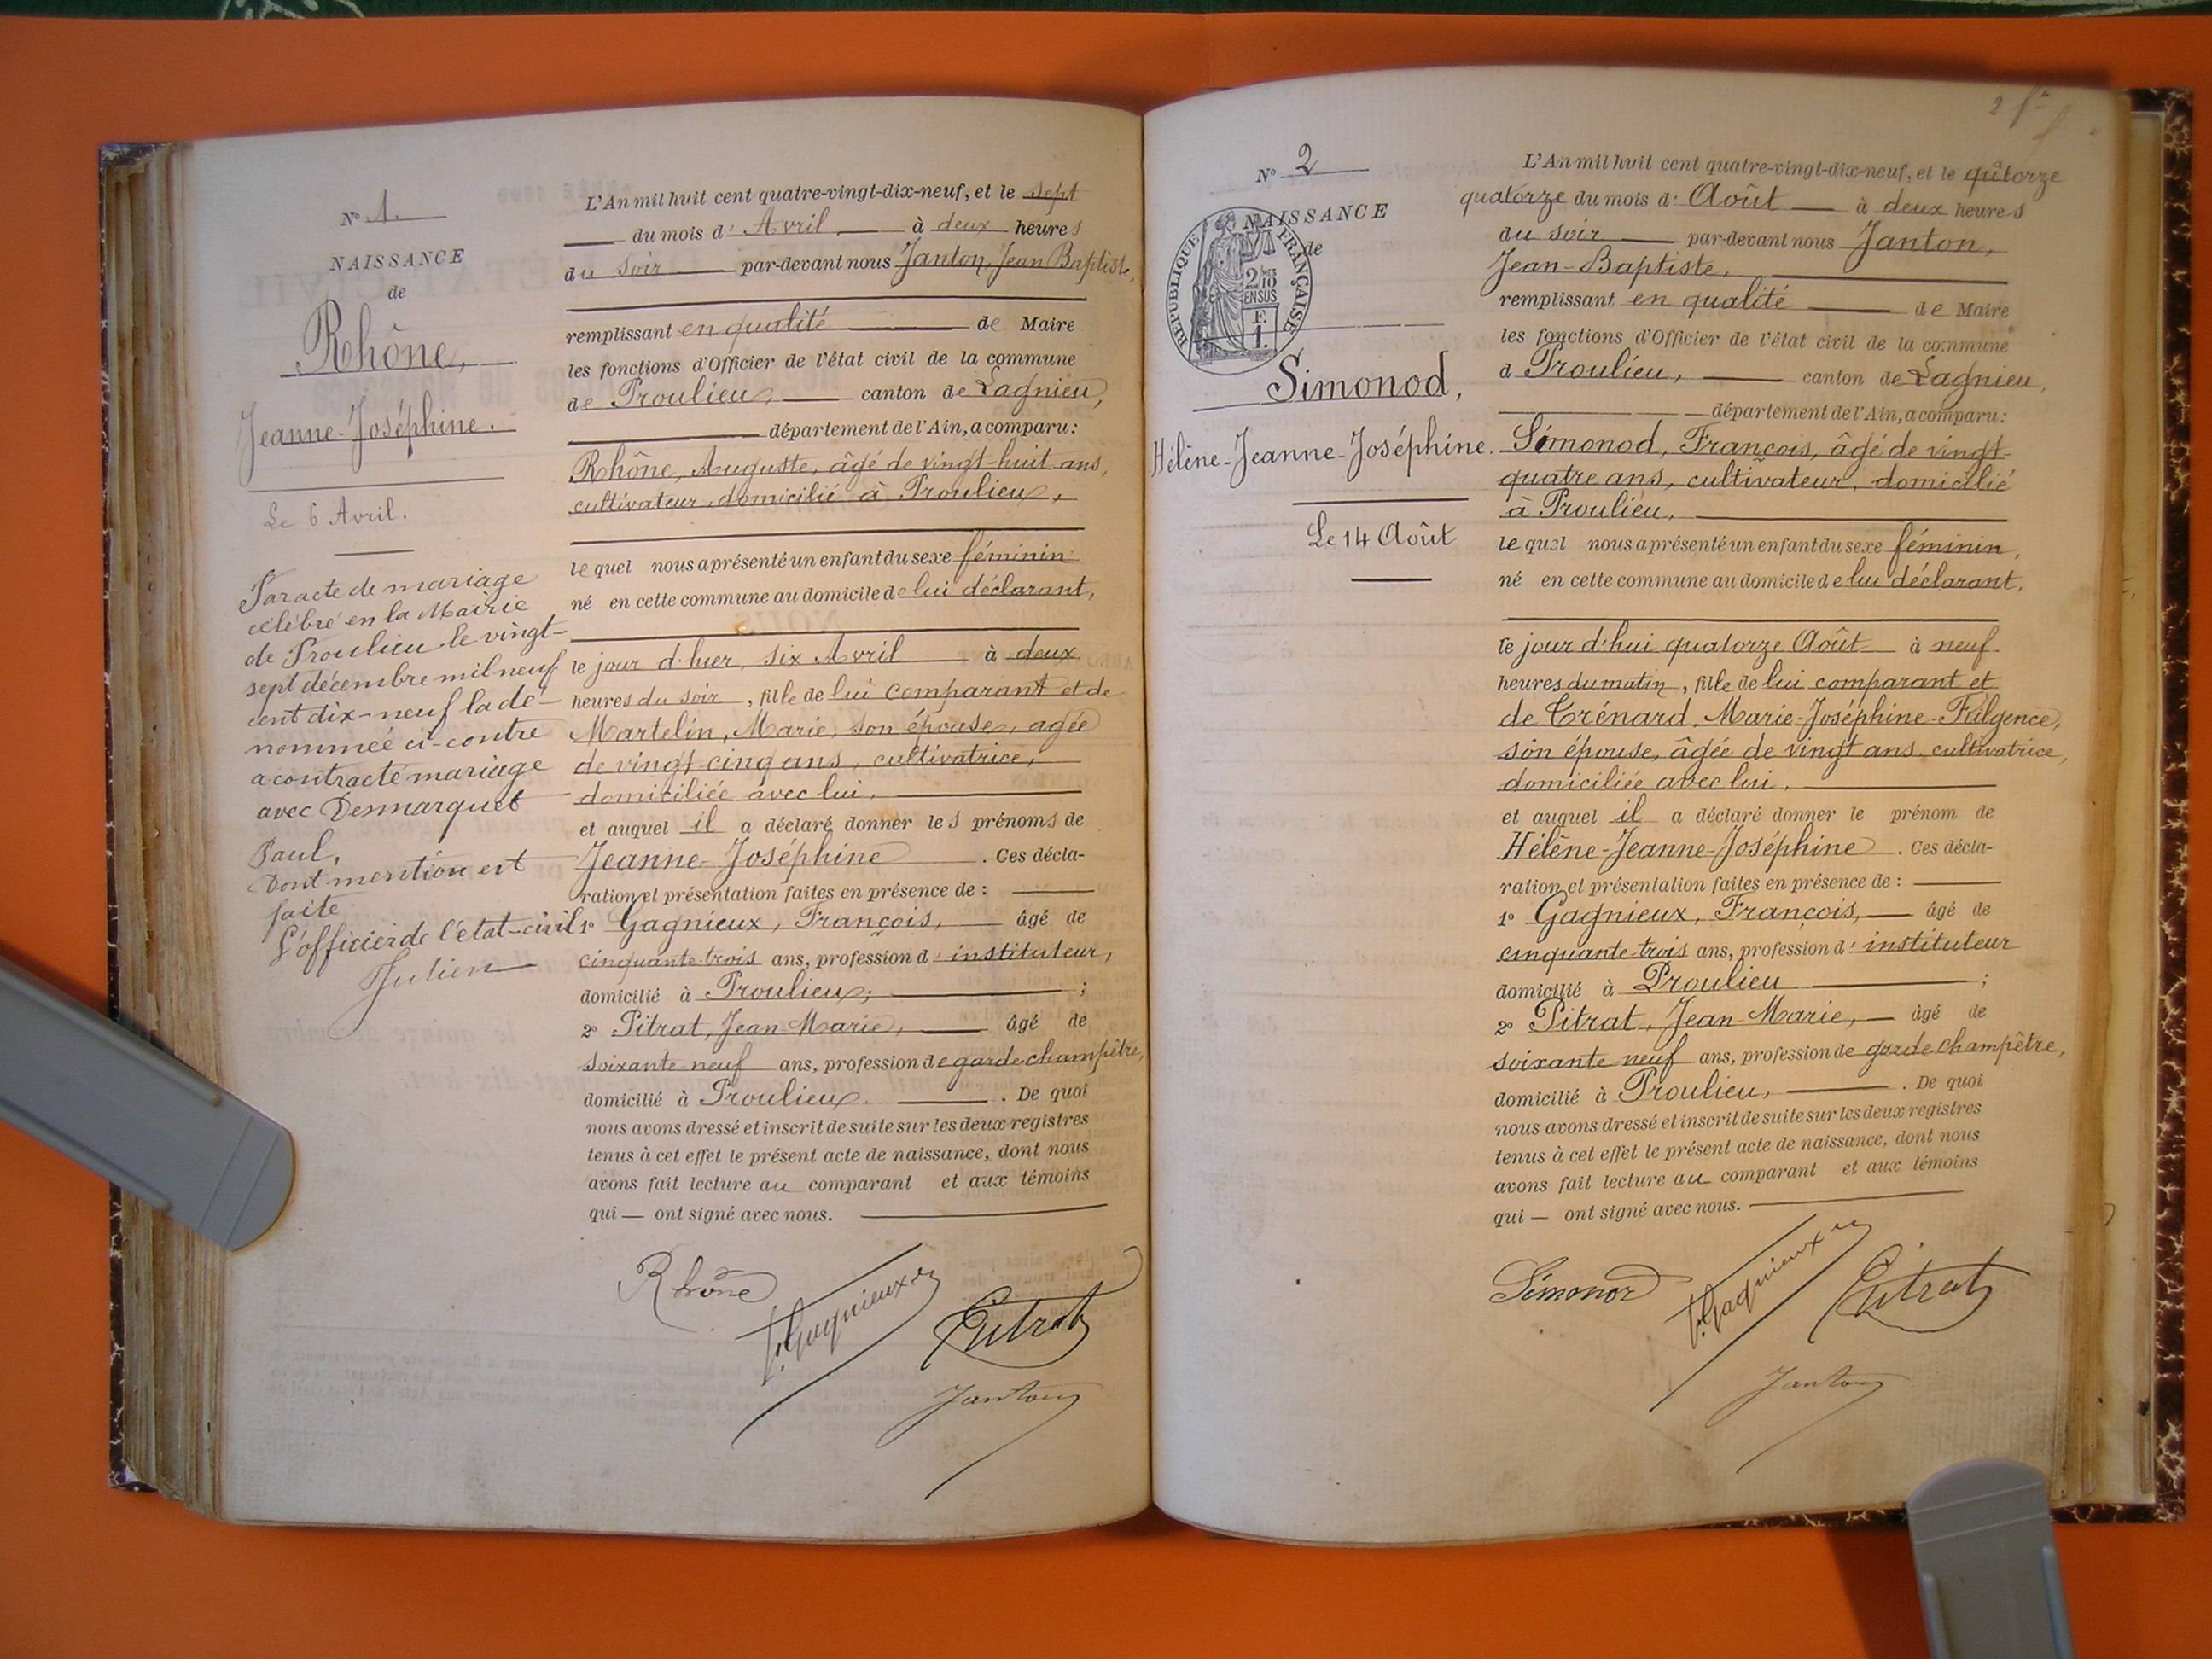 N° 1.
NAISSANCE
de
Rhône,
Jeanne-Joséphine.
Le 6 Avril.
Par acte de mariage
célébré en la Mairie
de Proulieu le vingt-
sept décembre mil neuf
cent dix-neuf la dé-
nommée ci-contre
a contracté mariage
avec Desmarquet
Paul,
Dont mention est
faite
L'officier de l'état-civil
Julien
L'An mil huit cent quatre-vingt-dix-neuf, et le sept
du mois d' Avril à deux heures
du soir par-devant nous Janton, Jean Baptiste,
remplissant en qualité de Maire
les fonctions d'Officier de l'état civil de la commune
de Proulieu, canton de Lagnieu,
département de l'Ain, a comparu :
Rhône, Auguste, âgé de vingt-huit ans,
cultivateur, domicilié à Proulieu,
lequel nous a présenté un enfant du sexe féminin
né en cette commune au domicile de lui déclarant,
le jour d'hier, six Avril à deux
heures du soir, fille de lui comparant et de
Martelin, Marie, son épouse, agée
de vingt cinq ans, cultivatrice,
domiciliée avec lui,
et auquel il a déclaré donner les prénoms de
Jeanne-Joséphine. Ces décla-
ration et présentation faites en présence de :
1° Gagnieux, François, âgé de
cinquante-trois ans, profession d'instituteur,
domicilié à Proulieu; ;
2° Pitrat, Jean-Marie, âgé de
soixante-neuf ans, profession de garde champêtre,
domicilié à Proulieu. . De quoi
nous avons dressé et inscrit de suite sur les deux registres
tenus à cet effet le présent acte de naissance, dont nous
avons fait lecture au comparant et aux témoins
qui — ont signé avec nous.
Rhône
f. Gagnieux
Pitrat
Janton
2
N° 2
NAISSANCE
de
RÉPUBLIQUE FRANÇAISE
2/10
EN SUS
F.
1.
Simonod,
Hélène-Jeanne-Joséphine.
Le 14 Août
L'An mil huit cent quatre-vingt-dix-neuf, et le qûtorze
quatorze du mois d' Août à deux heures
du soir par-devant nous Janton,
Jean-Baptiste,
remplissant en qualité de Maire
les fonctions d'Officier de l'état civil de la commune
d Proulieu, canton de Lagnieu,
département de l'Ain, a comparu :
Simonod, François, âgé de vingt-
quatre ans, cultivateur, domicilié
à Proulieu,
lequel nous a présenté un enfant du sexe féminin,
né en cette commune au domicile de lui déclarant,
le jour d'hui quatorze Août à neuf
heures du matin, fille de lui comparant et
de Crénard, Marie-Joséphine-Fulgence,
son épouse, âgée de vingt ans cultivatrice,
domiciliée avec lui,
et auquel il a déclaré donner le prénom de
Hélène-Jeanne-Joséphine. Ces décla-
ration et présentation faites en présence de :
1° Gagnieux, François, âgé de
cinquante-trois ans, profession d'instituteur
domicilié à Proulieu ;
2° Pitrat, Jean-Marie, âgé de
soixante-neuf ans, profession de garde champêtre,
domicilié à Proulieu, . De quoi
nous avons dressé et inscrit de suite sur les deux registres
tenus à cet effet le présent acte de naissance, dont nous
avons fait lecture au comparant et aux témoins
qui — ont signé avec nous.
Simonod
f. Gagnieux
Pitrat
Janton